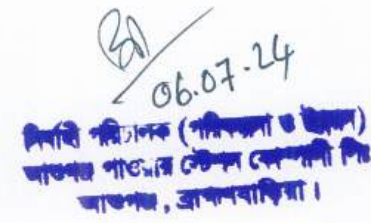 06.07.24
নির্বাহী পরিচালক (পরিকল্পনা ও উন্নয়ন)
আশুগঞ্জ পাওয়ার স্টেশন কোম্পানী লিঃ
আশুগঞ্জ, ব্রাহ্মণবাড়িয়া।